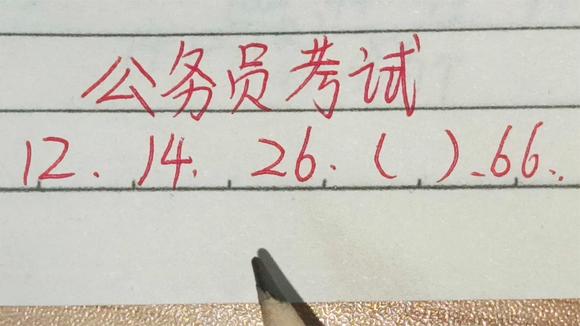 公务员考试
12. 14. 26. ( ). 66..